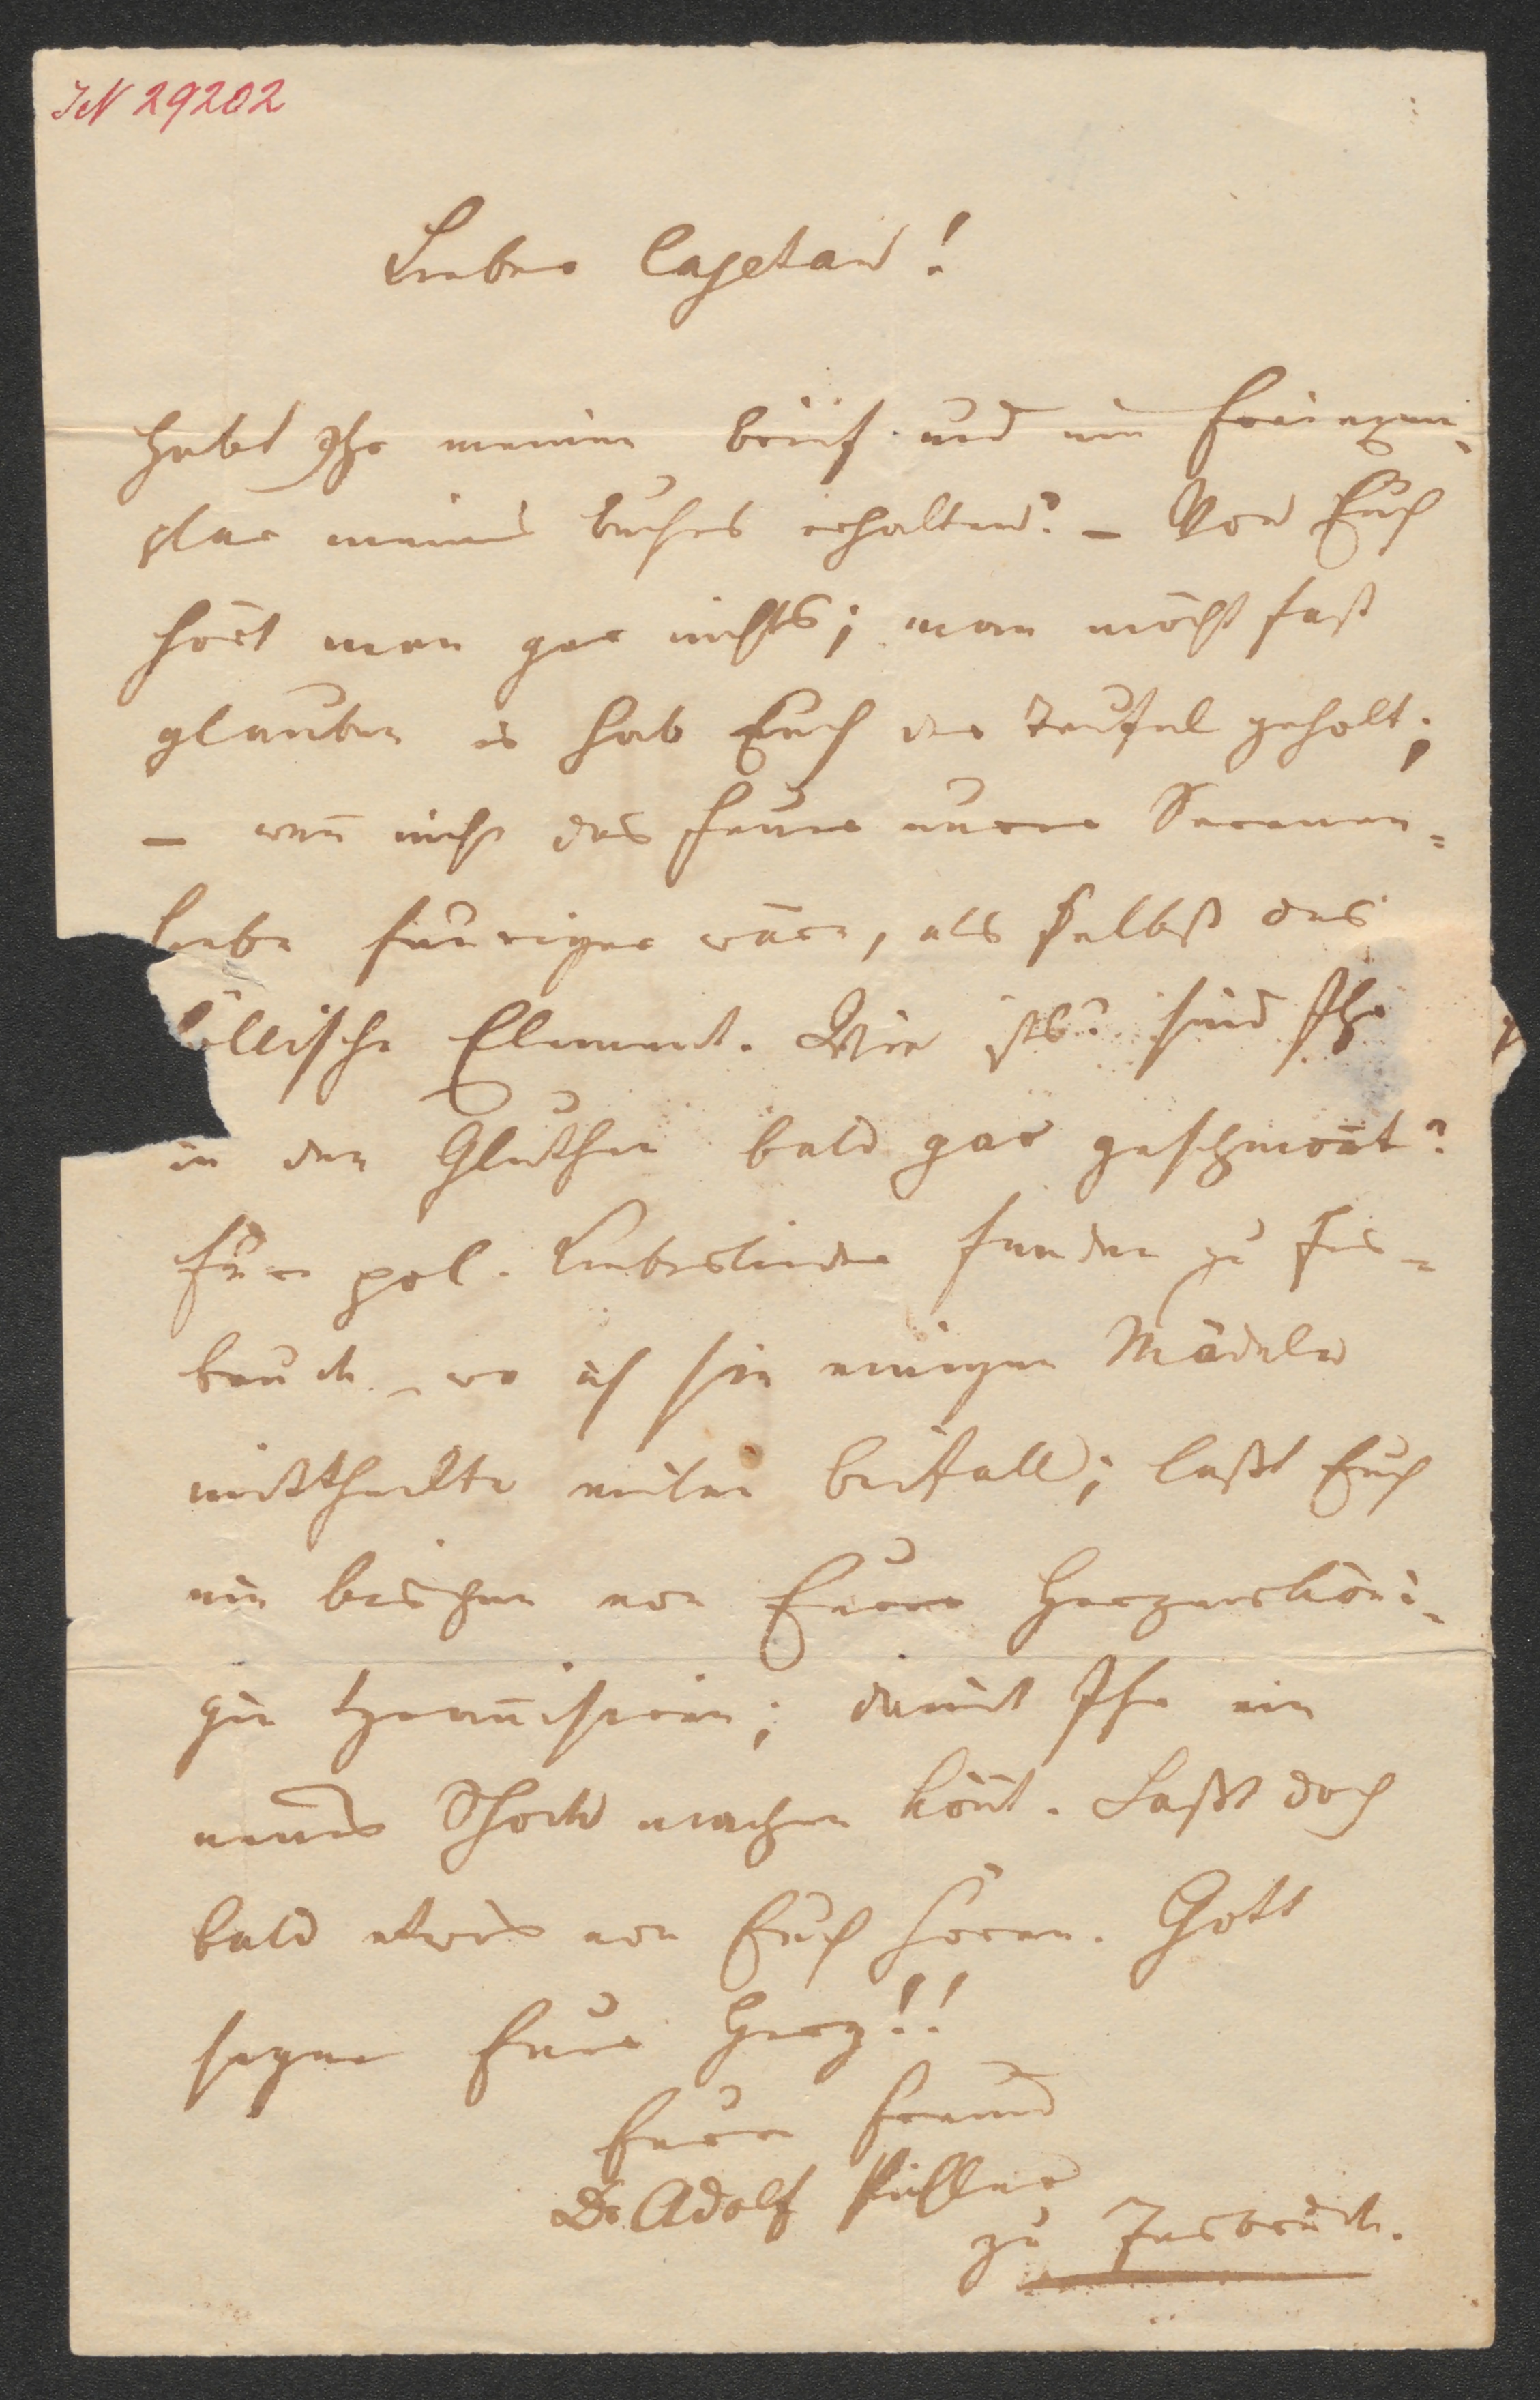 IN 29202
Lieber Cajetan!
Habt Ihr meinen Brief und ein Freiexem-
plar meines Buches erhalten? – Von Euch
hört man gar nichts; man möcht fast
glauben es hab Euch der Teufel geholt;
– wenn nicht das Feuer eurer
liebe feuriger wäre, als selbst das
öllische Element. Wie ists? sind Ihr
in den Gluthen bald gar geschmort?
Eure pol. Liebeslieder fanden zu Ins-
bruck, wo ich sie einigen Mädeln
mittheilte vielen Beifall; laßt Euch
ein bischen von Eurer Herzensköni-
gin tyrannisiren; damit Ihr ein
neues Schock machen könnt. Laßt doch
bald etwas von Euch hören. Gott
segne Euer Herz!!
Euer Freund
Dr. Adolf Pichler
zu Insbruck.